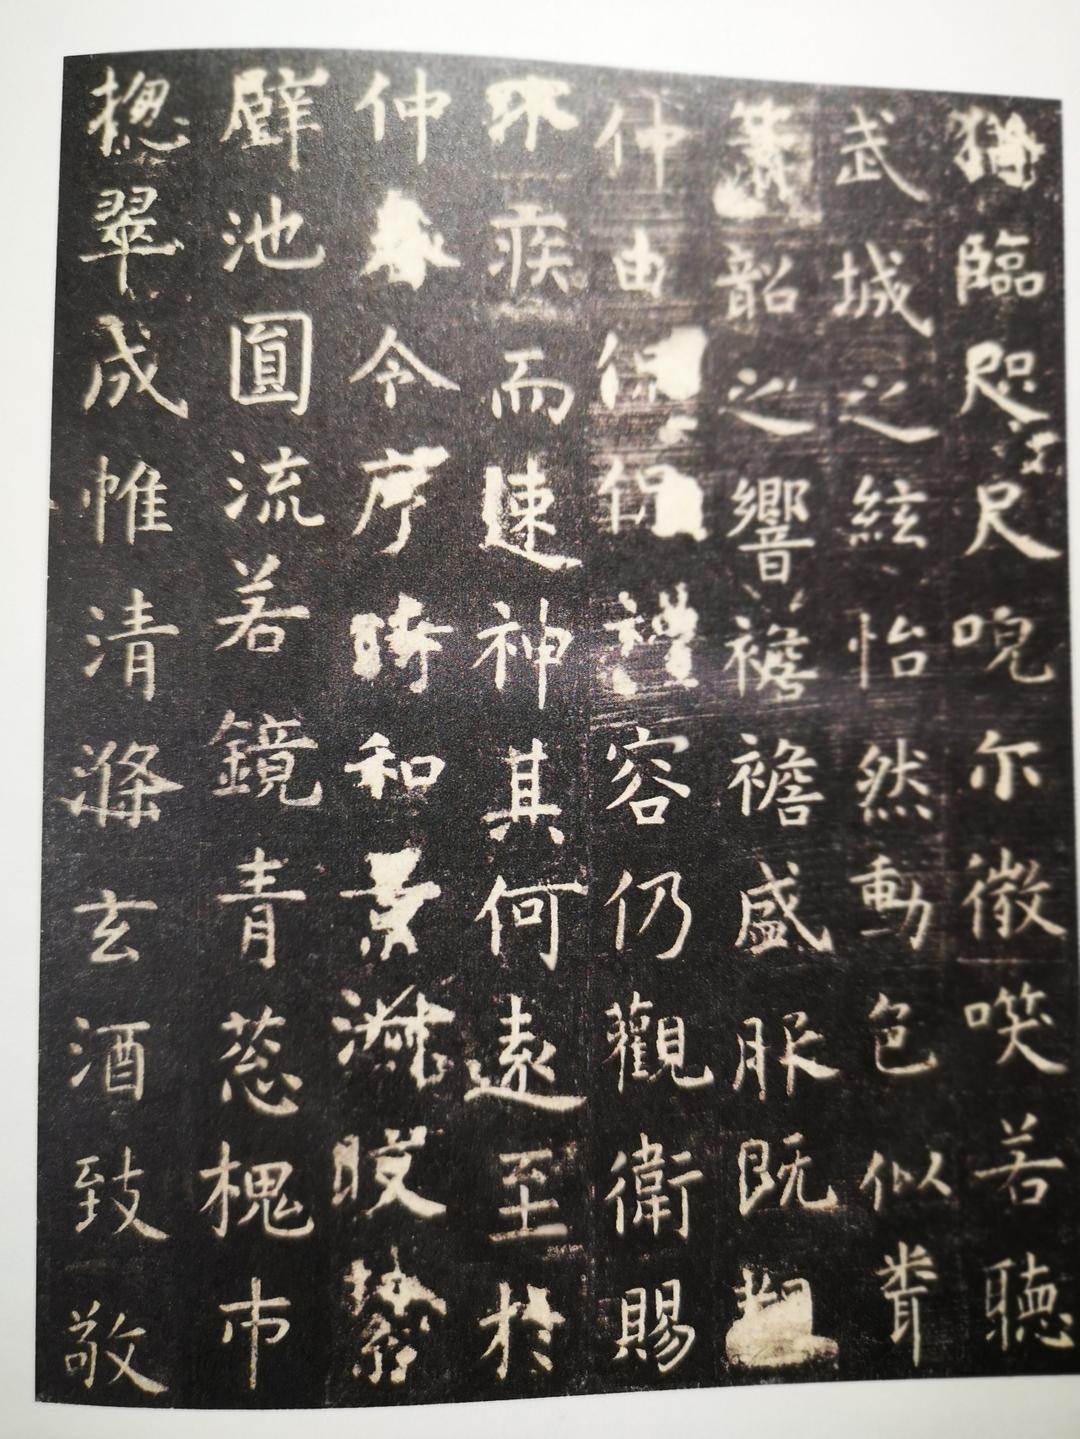 猶臨咫尺唍尔微笑若聽
武城之絃怡然動色似聞
簫韶之響襜襜盛服既覩
仲由侃侃禮容仍觀衛賜
不疾而速神其何遠至於
仲春令序時和景淑皎潔
璧池圓流若鏡青葱槐市
揔翠成帷清滌玄酒致敬